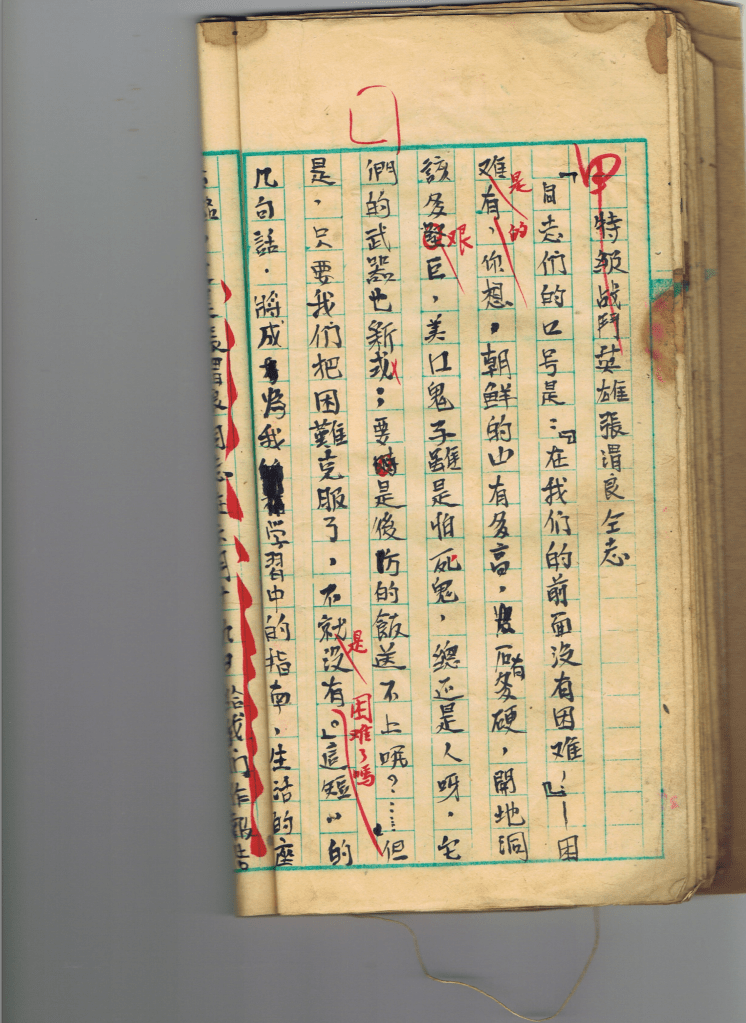 甲
特級战鬥英雄張渭良仝志
「目志们的口号是：『在我们的前面没有困难，』—困
难有，你想，朝鮮的山有多高，石有多硬，開地洞
是的
該多巨，美江鬼子雖是怕死鬼，總还是人呀，它
艰
們的武器也新式；要是後方的飯送不上呢？……但
是，只要我们把困難克服了，不就没有。」這短〃的
是困难了嗎
几句話．將成為我学習中的指南，生活的座
給我们作報告